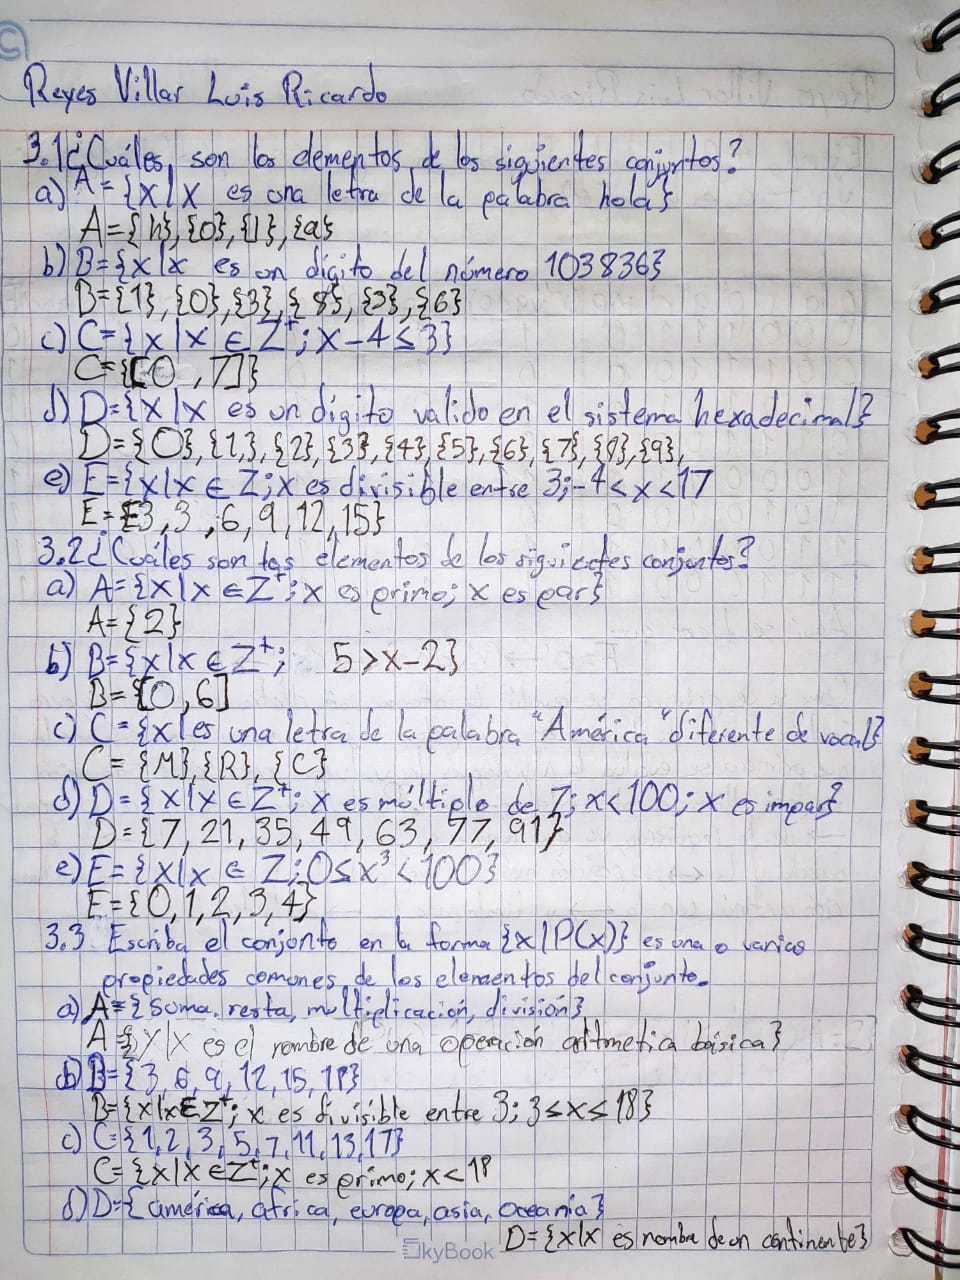 Reyes Villar Luis Ricardo
3.1¿Cuáles son los elementos de los siguientes conjuntos?
a) A={x|x es una letra de la palabra hola}
A={h},{o},{l},{a}
b) B={x|x es un dígito del número 103836}
B={1},{0},{3},{8},{3},{6}
c) C={x|x ∈ Z⁺; x-4≤3}
C={[0,7]}
d) D={x|x es un dígito valido en el sistema hexadecimal}
D={0},{1},{2},{3},{4},{5},{6},{7},{8},{9},
e) E={x|x ∈ Z; x es divisible entre 3;-4<x<17
E={-3,3,6,9,12,15}
3.2¿Cuáles son los elementos de los siguientes conjuntos?
a) A={x|x ∈ Z⁺; x es primo; x es par}
A={2}
b) B={x|x ∈ Z⁺; 5>x-2}
B=[0,6]
c) C={x|es una letra de la palabra "América" diferente de vocal}
C={M},{R},{C}
d) D={x|x ∈ Z⁺; x es múltiplo de 7; x<100; x es impar}
D={7,21,35,49,63,77,91}
e) E={x|x ∈ Z; 0≤x³<100}
E={0,1,2,3,4}
3.3 Escriba el conjunto en la forma {x|P(x)} es una o varias
propiedades comunes de los elementos del conjunto.
a) A={suma, resta, multiplicación, división}
A={X|X es el nombre de una operación aritmetica básica}
b) B={3,6,9,12,15,18}
B={x|x∈Z⁺; x es divisible entre 3; 3≤x≤18}
c) C={1,2,3,5,7,11,13,17}
C={x|x∈Z⁺; x es primo; x<18
d) D={américa, africa, europa, asia, oceanía}
D={x|x es nombre de un continente}
SkyBook